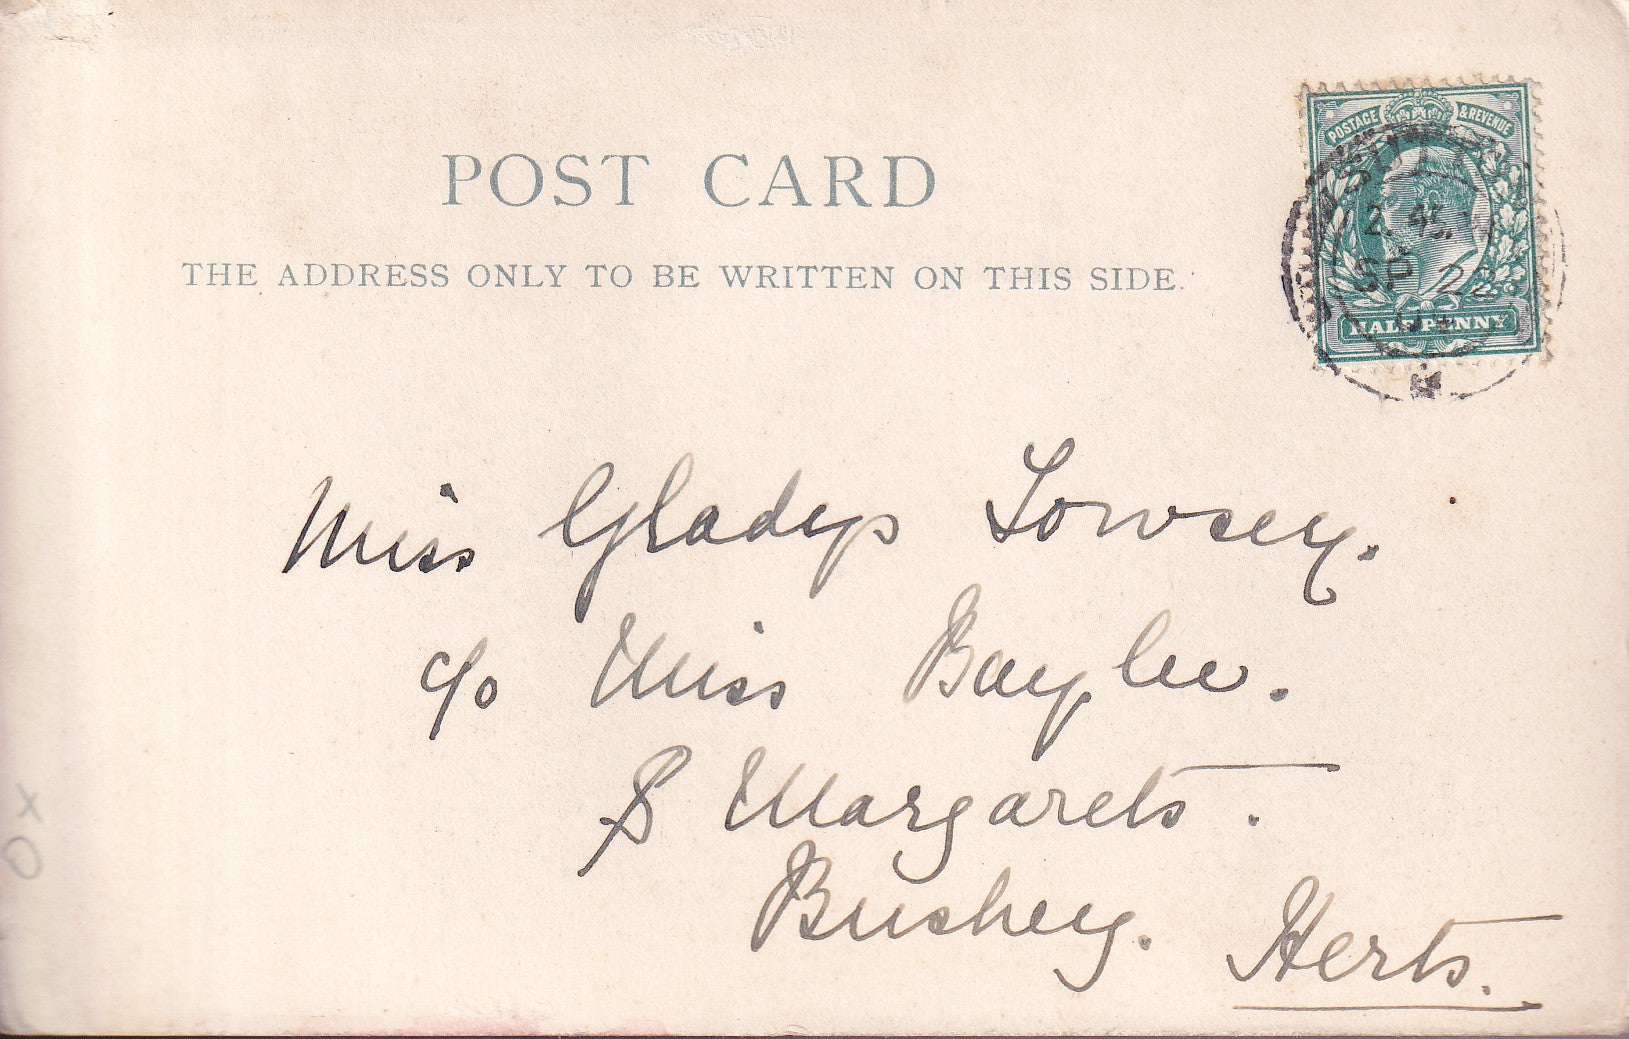 POST CARD
THE ADDRESS ONLY TO BE WRITTEN ON THIS SIDE.
POSTAGE & REVENUE
2. 45
SP 22
04
HALFPENNY
Miss Gladys Lowsey.
c/o Miss Baylee.
St Margarets.
Bushey. Herts.
X
O